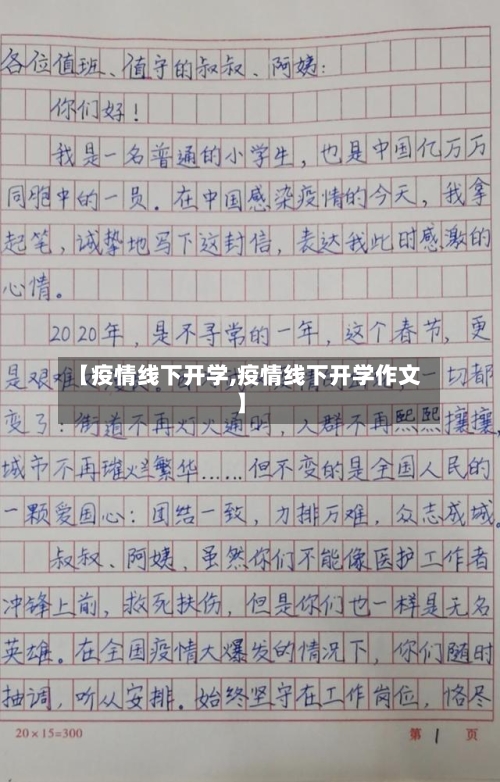 各位值班、值守的叔叔、阿姨:
你们好!
我是一名普通的小学生,也是中国亿万万
同胞中的一员。在中国感染疫情的今天,我拿
起笔,诚挚地写下这封信,表达我此时感激的
心情。
2020年,是不寻常的一年,这个春节,更
是艰难
一切都
【疫情线下开学,疫情线下开学作文
】
变了:街道不再灯火通明,人群不再熙熙攘攘,
城市不再璀烂繁华……但不变的是全国人民的
一颗爱国心:团结一致,力排万难,众志成城。
叔叔、阿姨,虽然你们不能像医护工作者
冲锋上前,救死扶伤,但是你们也一样是无名
英雄。在全国疫情大爆发的情况下,你们随时
抽调,听从安排。始终坚守在工作岗位,恪尽
20×15=300 第1页